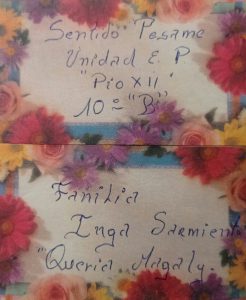 Sentido Pesame
Unidad E. P.
"Pio XII"
10º "B"
Familia
Inga Sarmiento
"Queria Magaly.